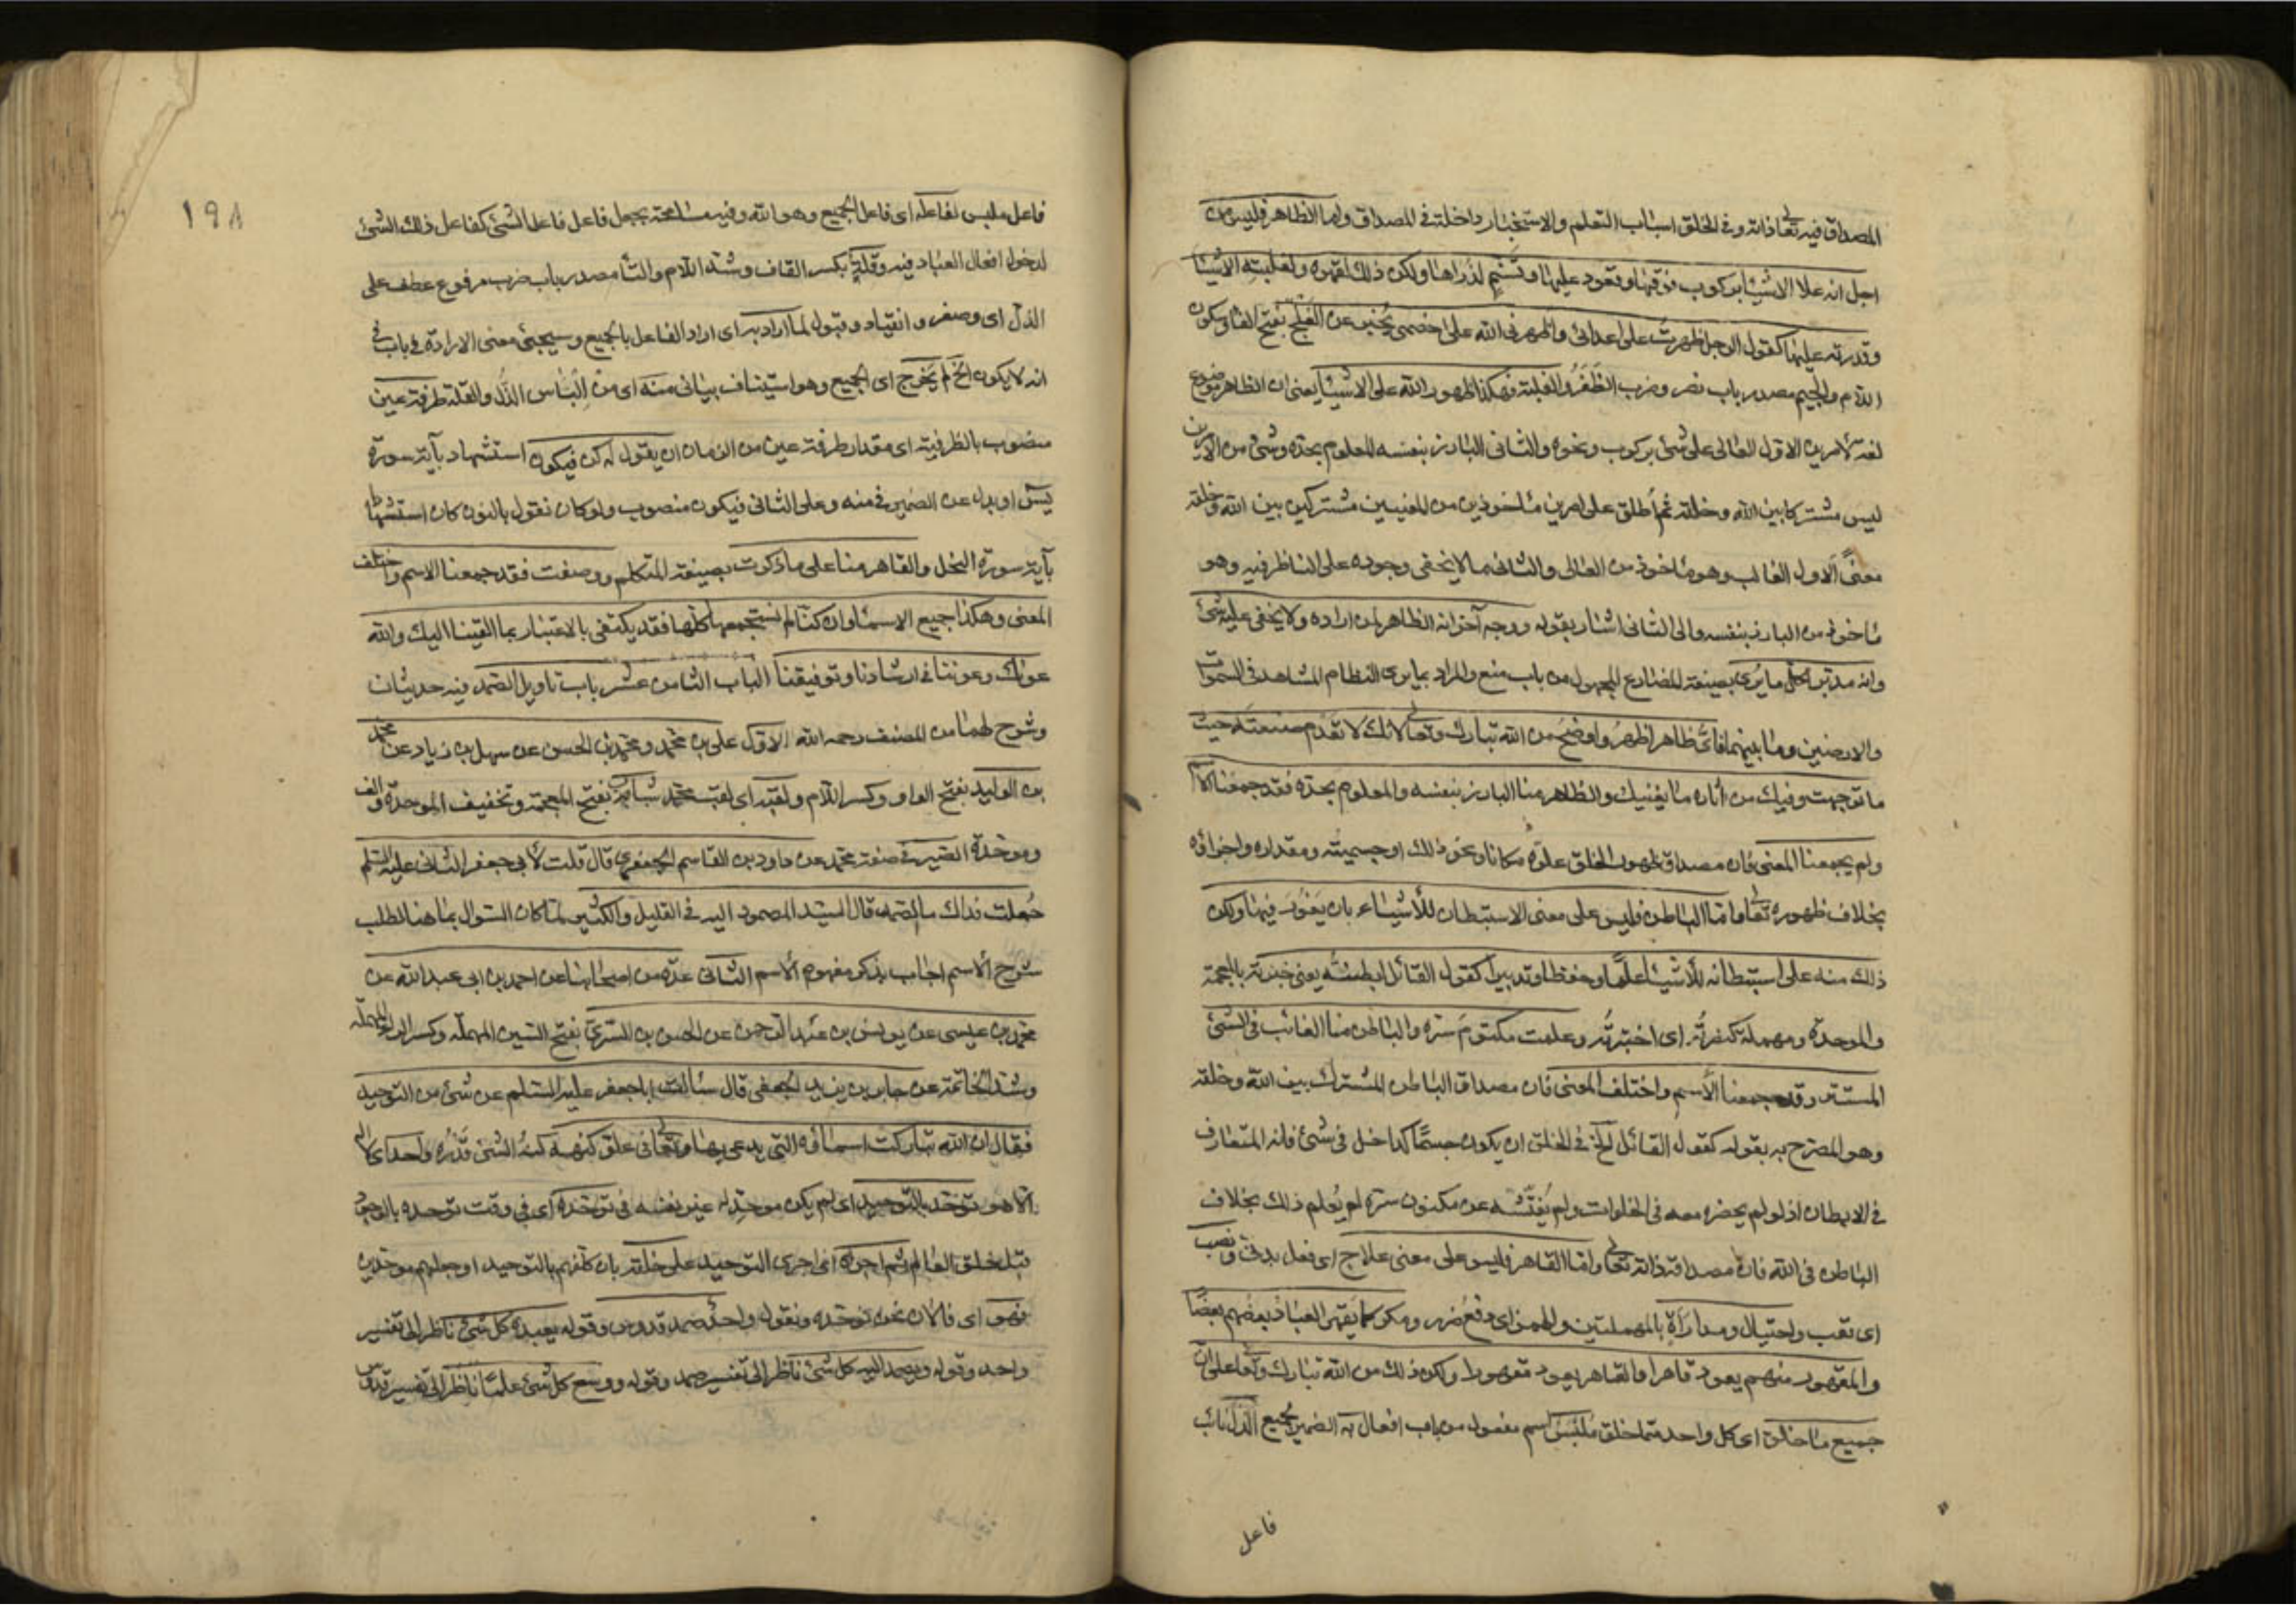 المصداق فيه تعالى ذاته وفي الخلق اسباب التعلم والاستخبار داخلة في المصداق واما الظاهر فليس من
اجل انه علا الاشياء بركوب فوقها وقعود عليها وتسنم لذراها ولكن ذلك لقهره ولغلبته الاشياء
وقدرته عليها كقول الرجل ظهرت على اعدائي واظهرني الله على خصمي يخبر عن الفلج بفتح الفاء وسكون
اللام والجيم مصدر باب نصر وضرب الظفر والغلبة فهكذا ظهور الله على الاشياء يعني ان الظاهر موضوع
لغة لأمرين الاول العالي على شئ بركوب ونحوه والثاني البارز بنفسه المعلوم بحده وشئ من الامرين
ليس مشتركا بين الله وخلقه ثم أطلق على امرين مأخوذين من المعنيين مشتركين بين الله وخلقه
معنى الاول الغالب وهو مأخوذ من العالي والثاني ما لا يخفى وجوده على الناظر فيه وهو
مأخوذ من البارز بنفسه والى الثاني اشار بقوله ووجه آخر انه الظاهر لمن اراده ولا يخفى عليه شئ
وانه مدبر لكل ما يرى بصيغة المضارع المجهول من باب منع والمراد بما يرى النظام المشاهد في السموات
والارضين وما بينهما فأي ظاهر اظهر واوضح من الله تبارك وتعالى لانك لا تقدم صنعته حيث
ما توجهت وفيك من آثاره ما يغنيك والظاهر منا البارز بنفسه والمعلوم بحده فقد جمعنا الاسم
ولم يجمعنا المعنى فان مصداق ظهور الخلق علوه مكانا ونحو ذلك او جسميته ومقداره واجزاؤه
بخلاف ظهوره تعالى واما الباطن فليس على معنى الاستبطان للأشياء بان يغور فيها ولكن
ذلك منه على استبطانه للأشياء علما وحفظا وتدبيرا كقول القائل ابطنته يعني خبرته بالمعجمة
والموحدة ومهملة كنصرته اى اختبرته وعلمت مكتوم سره والباطن منا الغائب في الشئ
المستتر وقد جمعنا الأسم واختلف المعنى فان مصداق الباطن المشترك بين الله وخلقه
وهو المصرح به بقوله كقول القائل الخ في الخلق ان يكون جسما كداخل في شئ فانه المتعارف
في الابطان اذ لو لم يحضره معه في الخلوات ولم يفتشه عن مكنون سره لم يعلم ذلك بخلاف
الباطن في الله فان مصداقه ذاته تعالى واما القاهر فليس على معنى علاج اى فعل بدني ونصب
اى تعب واحتيال ومدارأة بالمهملتين والهمز اى دفع ضرر ومكر كما يقهر العباد بعضهم بعضا
والمقهور منهم يعود قاهرا والقاهر يعود مقهورا ولكن ذلك من الله تبارك وتعالى على ان
جميع ما خلق اى كل واحد مما خلق ملبس اسم مفعول من باب افعال به الضمير لجميع الذل نائب
فاعل
١٩٨
فاعل ملبس لفاعله اى فاعل الجميع وهو الله وفيه مسامحة بجعل فاعل فاعل الشئ كفاعل ذلك الشئ
لدخول افعال العباد فيه وقلة بكسر القاف وشد اللام والتاء مصدر باب ضرب مرفوع عطف على
الذل اى وصغر وانقياد وقبول لما اراد به اى اراد الفاعل بالجميع وسيجئ معنى الارادة في باب في
انه لا يكون الخ لم يخرج اى الجميع وهو استيناف بياني منه اى من الباس الذل والقلة طرفة عين
منصوب بالظرفية اى مقدار طرفة عين من الزمان ان يقول له كن فيكون استشهاد بآية سورة
يس او بدل عن الضمير في منه وعلى الثاني فيكون منصوب ولو كان نقول بالنون كان استشهادا
بآية سورة النحل والقاهر منا على ما ذكرت بصيغة المتكلم ووصفت فقد جمعنا الاسم واختلف
المعنى وهكذا جميع الاسماء وان كنا لم نستجمعها كلها فقد يكتفى بالاعتبار بما القينا اليك والله
عونك وعوننا في ارشادنا وتوفيقنا الباب الثامن عشر باب تاويل الصمد فيه حديثان
وشرح لهما من المصنف رحمه الله الاول علي بن محمد ومحمد بن الحسن عن سهل بن زياد عن محمد
بن الوليد بفتح الواو وكسر اللام ولقبه اى لقب محمد شباب بفتح المعجمة وتخفيف الموحدة والف
وموحدة الصيرفي صفة محمد عن داود بن القاسم الجعفري قال قلت لأبي جعفر الثاني عليه السلم
جعلت فداك ما الصمد قال السيد المصمود اليه في القليل والكثير لما كان السؤال بما هنا لطلب
شرح الأسم اجاب بذكر مفهوم الأسم الثاني عدة من اصحابنا عن احمد بن ابي عبد الله عن
محمد بن عيسى عن يونس بن عبد الرحمن عن الحسن بن السري بفتح السين المهملة وكسر الراء المهملة
وشد الخاتمة عن جابر بن يزيد الجعفي قال سألت اباجعفر عليه السلم عن شئ من التوحيد
فقال ان الله تباركت اسماؤه التي يدعى بها وتعالى في علو كنهه كنه الشئ قدره واحد اى لا اله
الا هو توحد بالتوحيد اى لم يكن موحد له غير نفسه في توحده اى في وقت توحده بالوجود
قبل خلق العالم ثم اجراه اى اجرى التوحيد على خلقه بان كلفهم بالتوحيد او جعلهم موحدين
فهو اى فالآن نحن نوحده ونقول واحد صمد قدوس وقوله يعبده كل شئ ناظر الى تفسير
واحد وقوله ويصمد اليه كل شئ ناظر الى تفسير صمد وقوله ووسع كل شئ علما ناظر الى تفسير قدوس